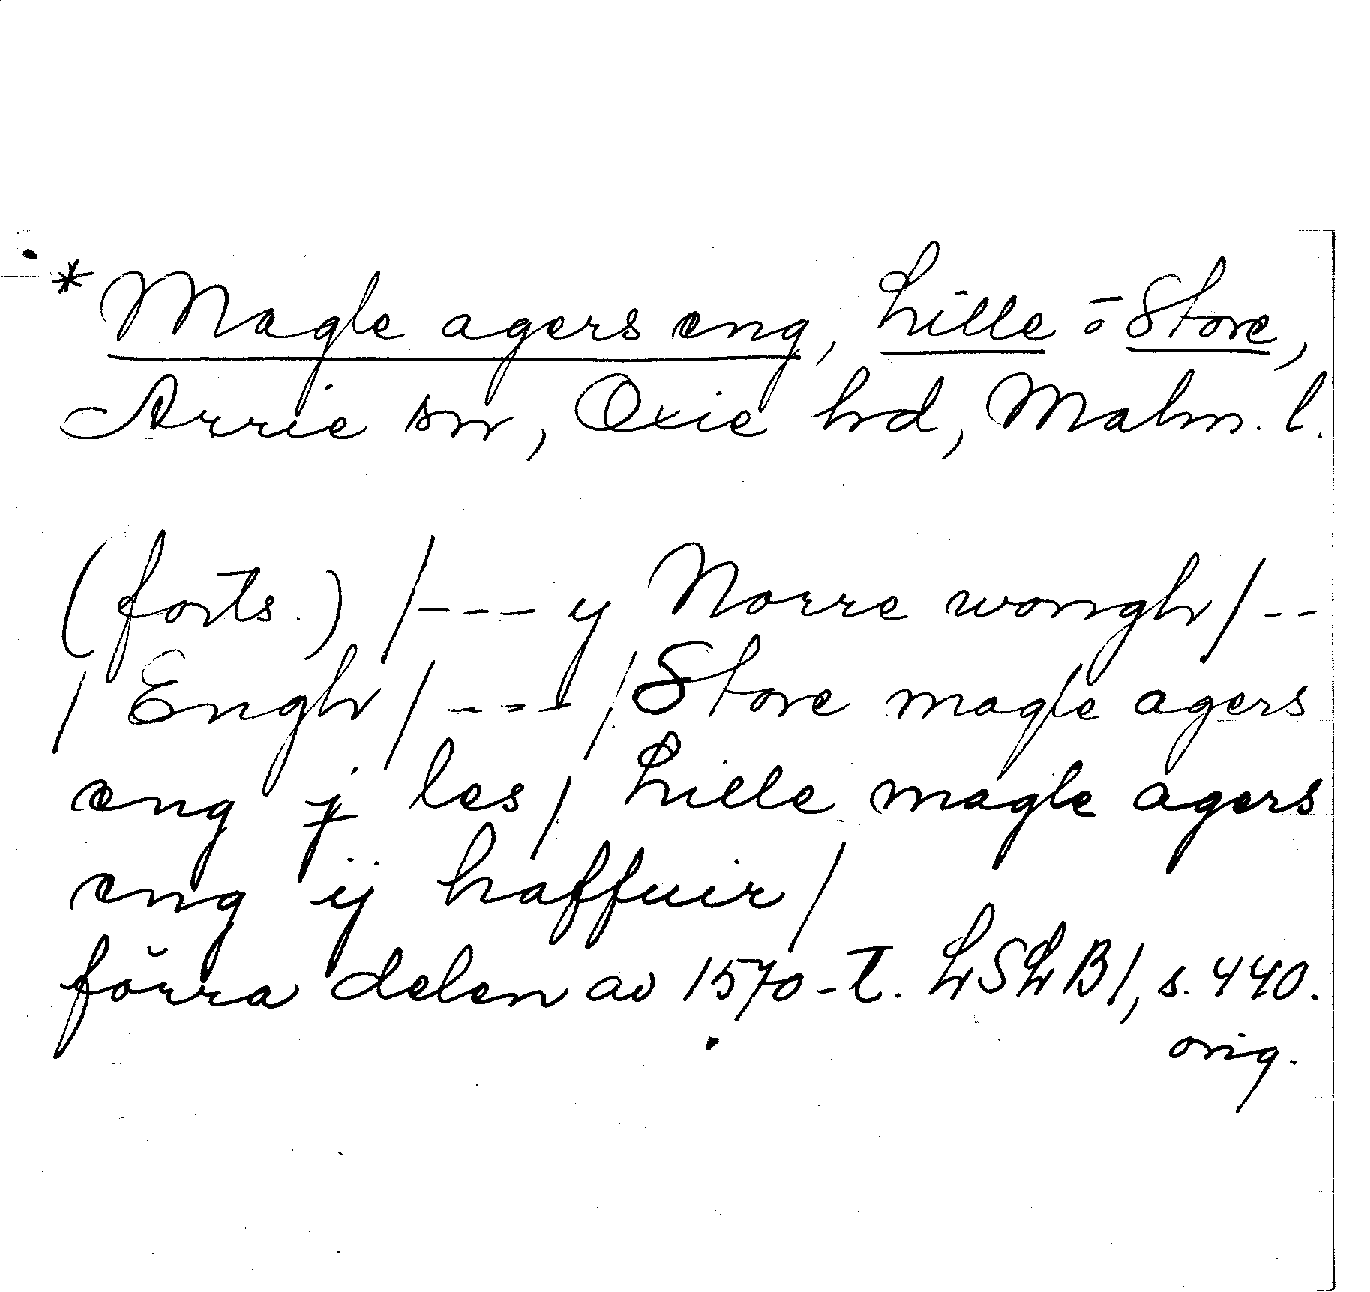 * Magle agers eng, Lille - o Store,
Arrie sn, Oxie hd, Malm. l.
(forts.) /--- y Norre wongh/--
/Engh/---/Store magle agers
eng j les/ Lille magle agers
eng ij haffuir/
förra delen av 1570-t. LSLB1, s. 440.
orig.